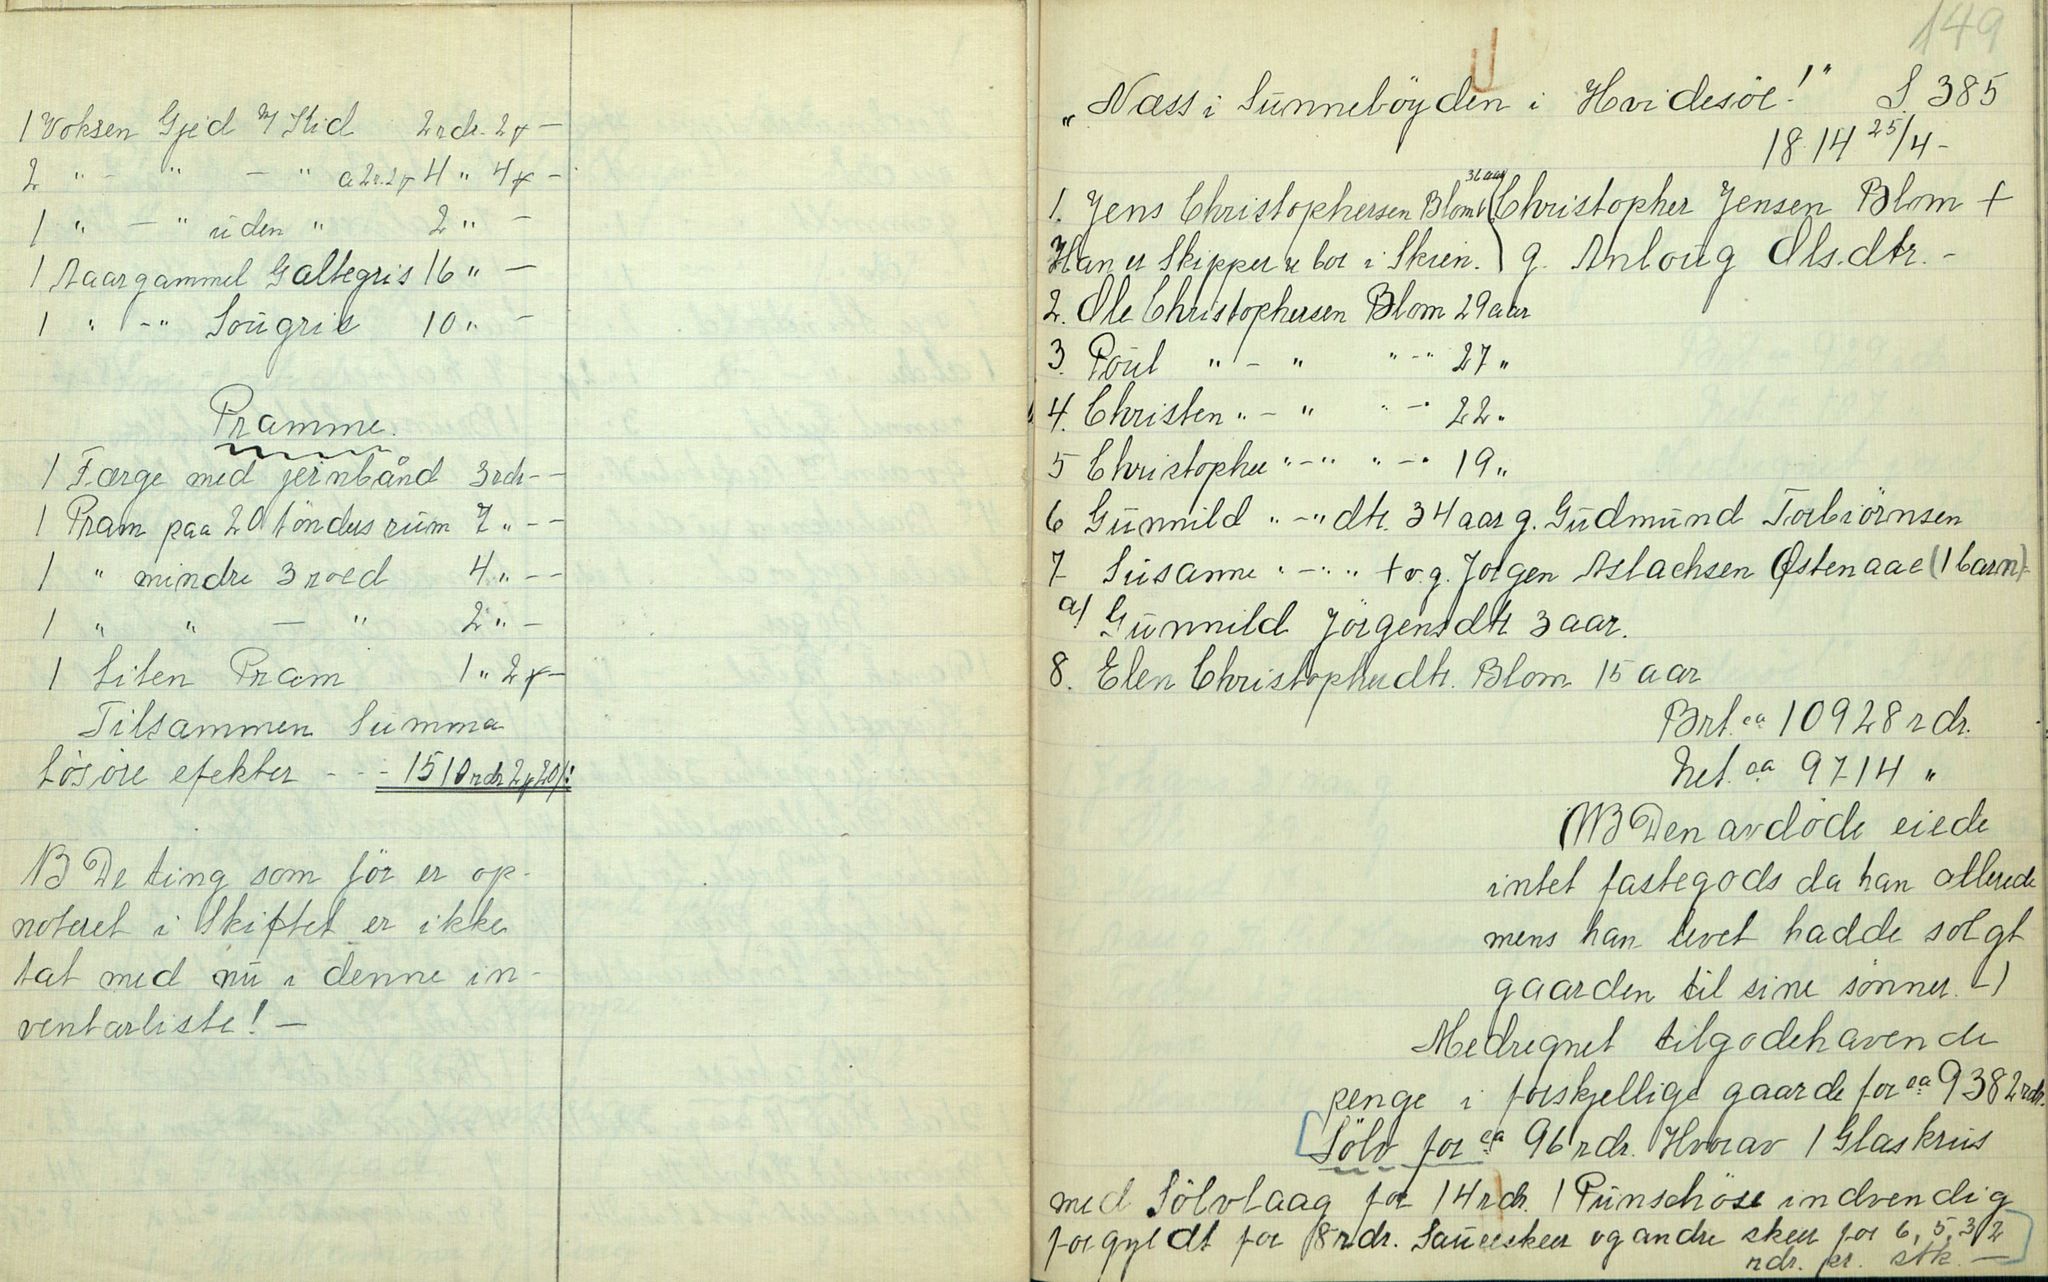 1 Voksen Gjed m/ Kid 2 rdr. 2 ₰ —
2 " - " - " a 2 r. 2 ₰ 4 " 4 ₰ —
1 " - " uden " 2 " —
1 Aargammel Galtegris 16 " —
1 " - " Sougris 10 " —
Pramme.
1 Færge med jernbånd 3 rdr - -
1 Pram paa 20 tönders rúm 7 " - -
1 " mindre 3 roed 4 " - -
1 " " — " 2 " -
1 Liten Pram 1 " 2 ₰ -
Tilsammen Summa
Lösöre efekter - - - 1510 rdr 2 ₰ 20 /:
NB De ting som för er op-
noteret i Skiftet er ikke
tat med nú i denne in-
ventarliste! —
149
„Næss i Súnneböyden i Hvidesöe!" S 385
1814 25/4 -
1. Jens Christophersen Blom 36 aar (Christopher Jensen Blom +
Han er Skipper u bor i Skien. ) g. Anloúg Ols.dtr. -
2. Ole Christophersen Blom 29 aar
3. Poúl " - " " - " 27 "
4. Christen " - " " - " 22 "
5 Christopher " - " " - " 19 "
6 Gúnnild " - " dtr. 34 aar g. Gúdmúnd Torbiörnsen
7 Súsanne " - " " + v. g. Jörgen Aslachsen Østenaae (1 barn) -
a) Gúnnild Jörgensdtr 3 aar.
8. Elen Christopherdtr. Blom 15 aar
Brt. ca 10928 rdr.
Net. ca 9714 "
(NB Den avdöde eiede
intet fastegods da han allerede
mens han levet hadde solgt
gaarden til sine sönner. -)
Medregnet tilgodehavende
penge i forskjellige gaarde for ca 9382 rdr.
[Sölv for ca 96 rdr. Hvorav 1 Glaskrús
med Sölvlaag for 14 rdr. 1 Púnschöse indvendig
forgyldt for 8 rdr. Saúseskeer og andre skeer for 6, 5, 3, 2
rdr. pr. stk. —]